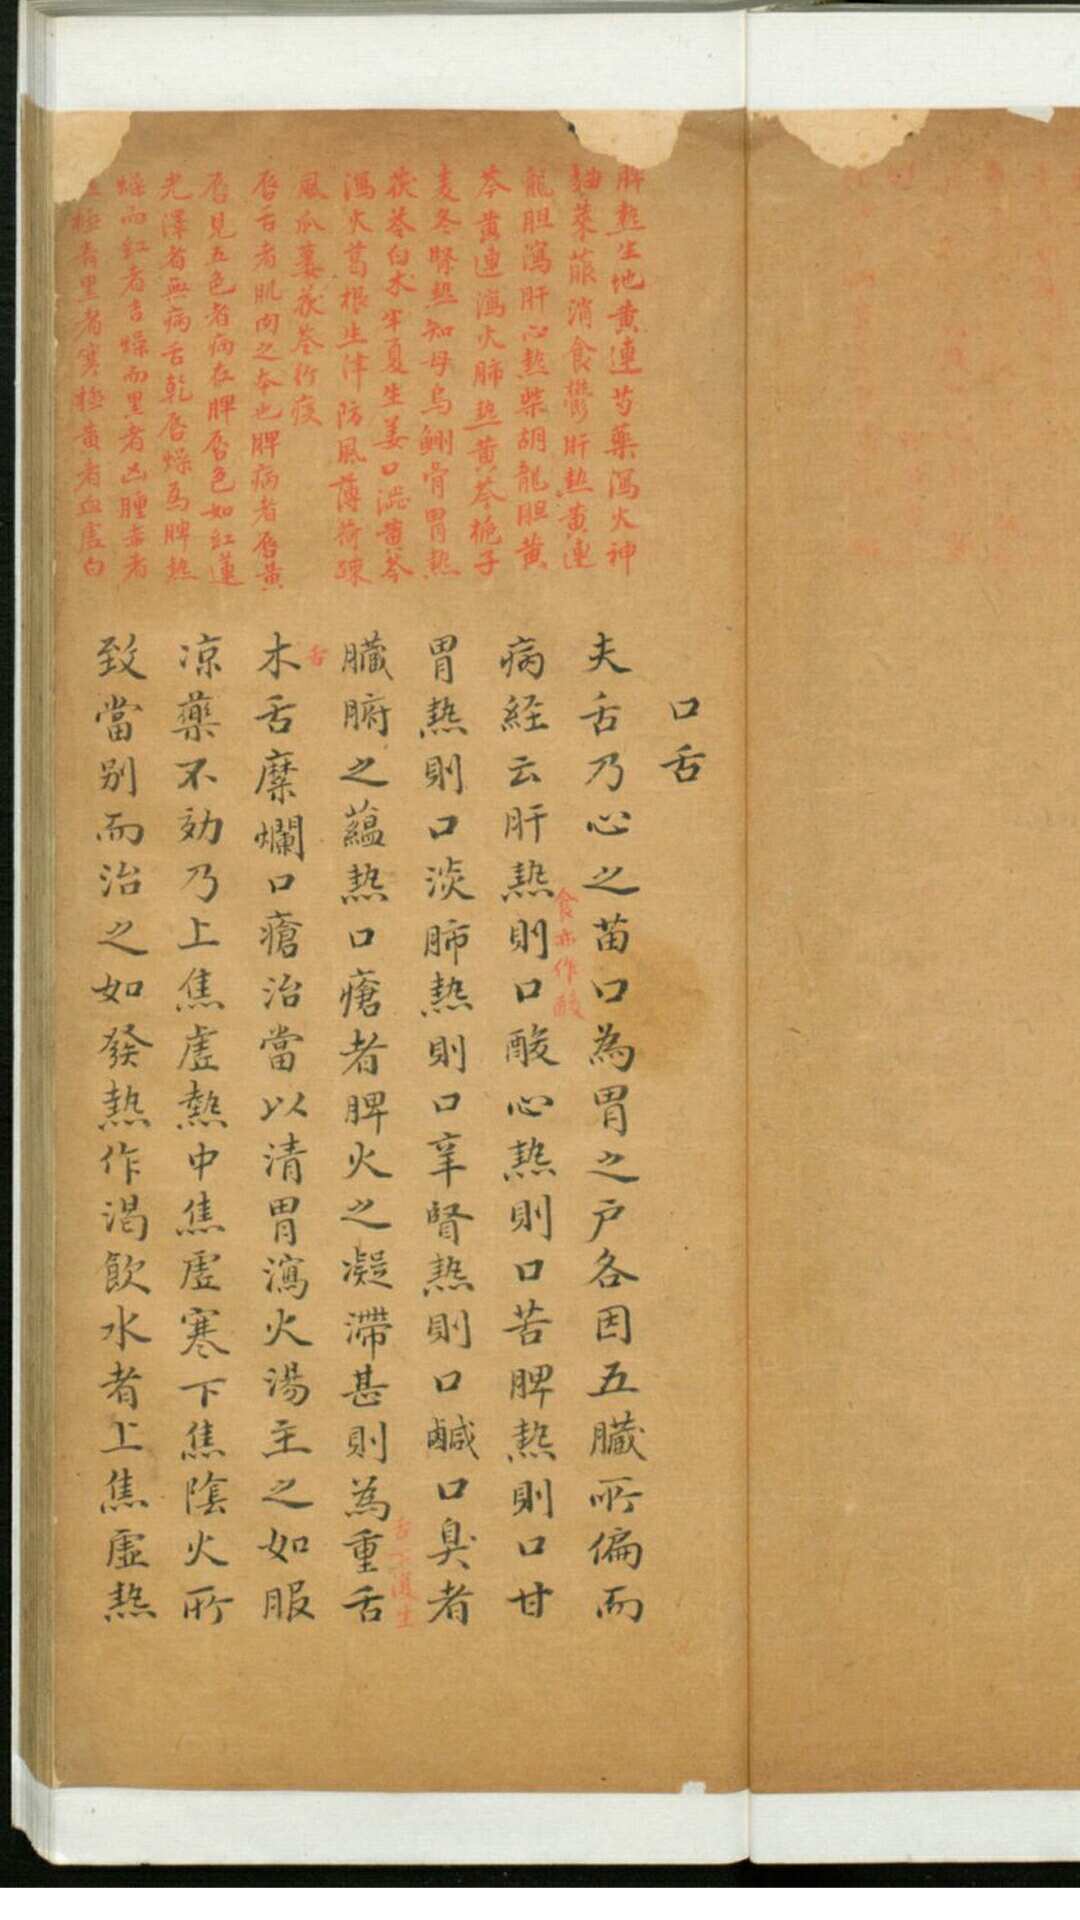 脾熱生地黄連芍藥瀉火神
麯萊菔消食鬱肝熱黄連
龍胆瀉肝心熱柴胡龍胆黄
芩黄連瀉火肺熱黄芩梔子
麦冬腎熱知母烏鰂骨胃熱
茯苓白朮半夏生姜口澁黄芩
瀉火葛根生津防風薄荷疎
風瓜蔞茯苓行痰
唇舌者肌肉之本也脾病者唇黄
唇見五色者病在脾唇色如紅蓮
光澤者無病舌乾唇燥為脾熱
燥而紅者吉燥而黒者凶腫赤者
極青黒者寒極黄者血虚白
口舌
夫舌乃心之苗口為胃之戸各因五臓所偏而
病経云肝熱則口酸心熱則口苦脾熱則口甘
食亦作酸
胃熱則口淡肺熱則口辛腎熱則口鹹口臭者
臓腑之蘊熱口瘡者脾火之凝滞甚則為重舌
舌下復生
舌
木舌糜爛口瘡治當以清胃瀉火湯主之如服
凉藥不効乃上焦虚熱中焦虚寒下焦陰火所
致當别而治之如發熱作渇飲水者上焦虚熱